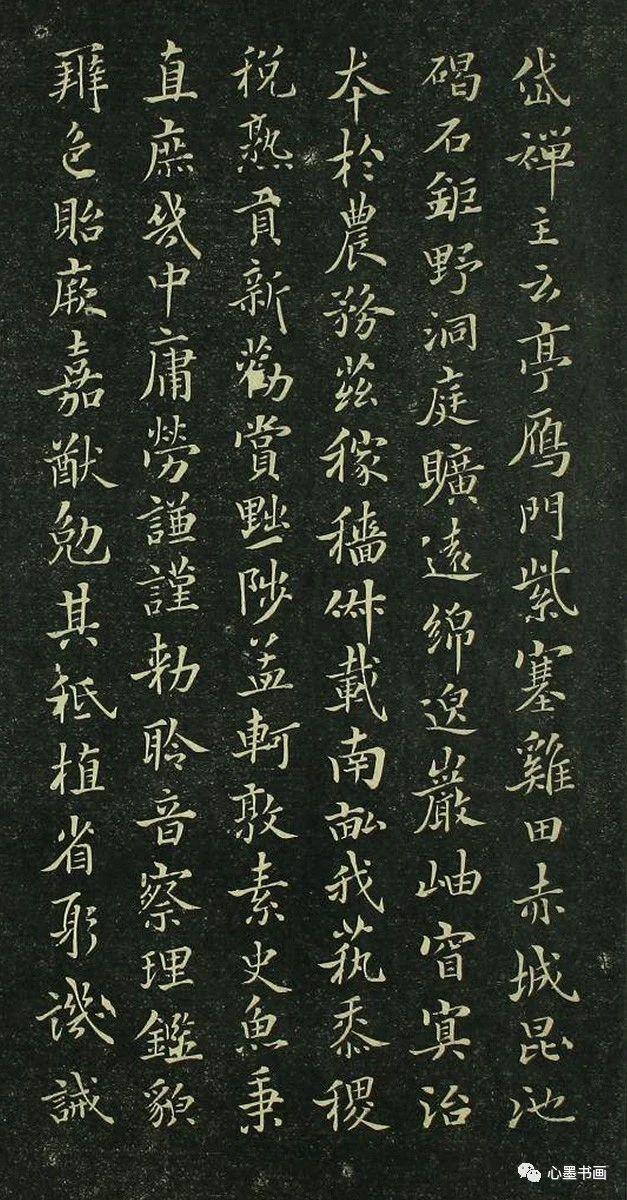 岱禪主云亭鴈門紫塞雞田赤城昆池
碣石鉅野洞庭曠遠綿邈巖岫窅冥治
本於農務茲稼穡俶載南畝我蓺黍稷
稅熟貢新勸賞黜陟孟軻敦素史魚秉
直庶幾中庸勞謙謹勅聆音察理鑑貌
辨色貽厥嘉猷勉其祗植省躬譏誡
心墨书画